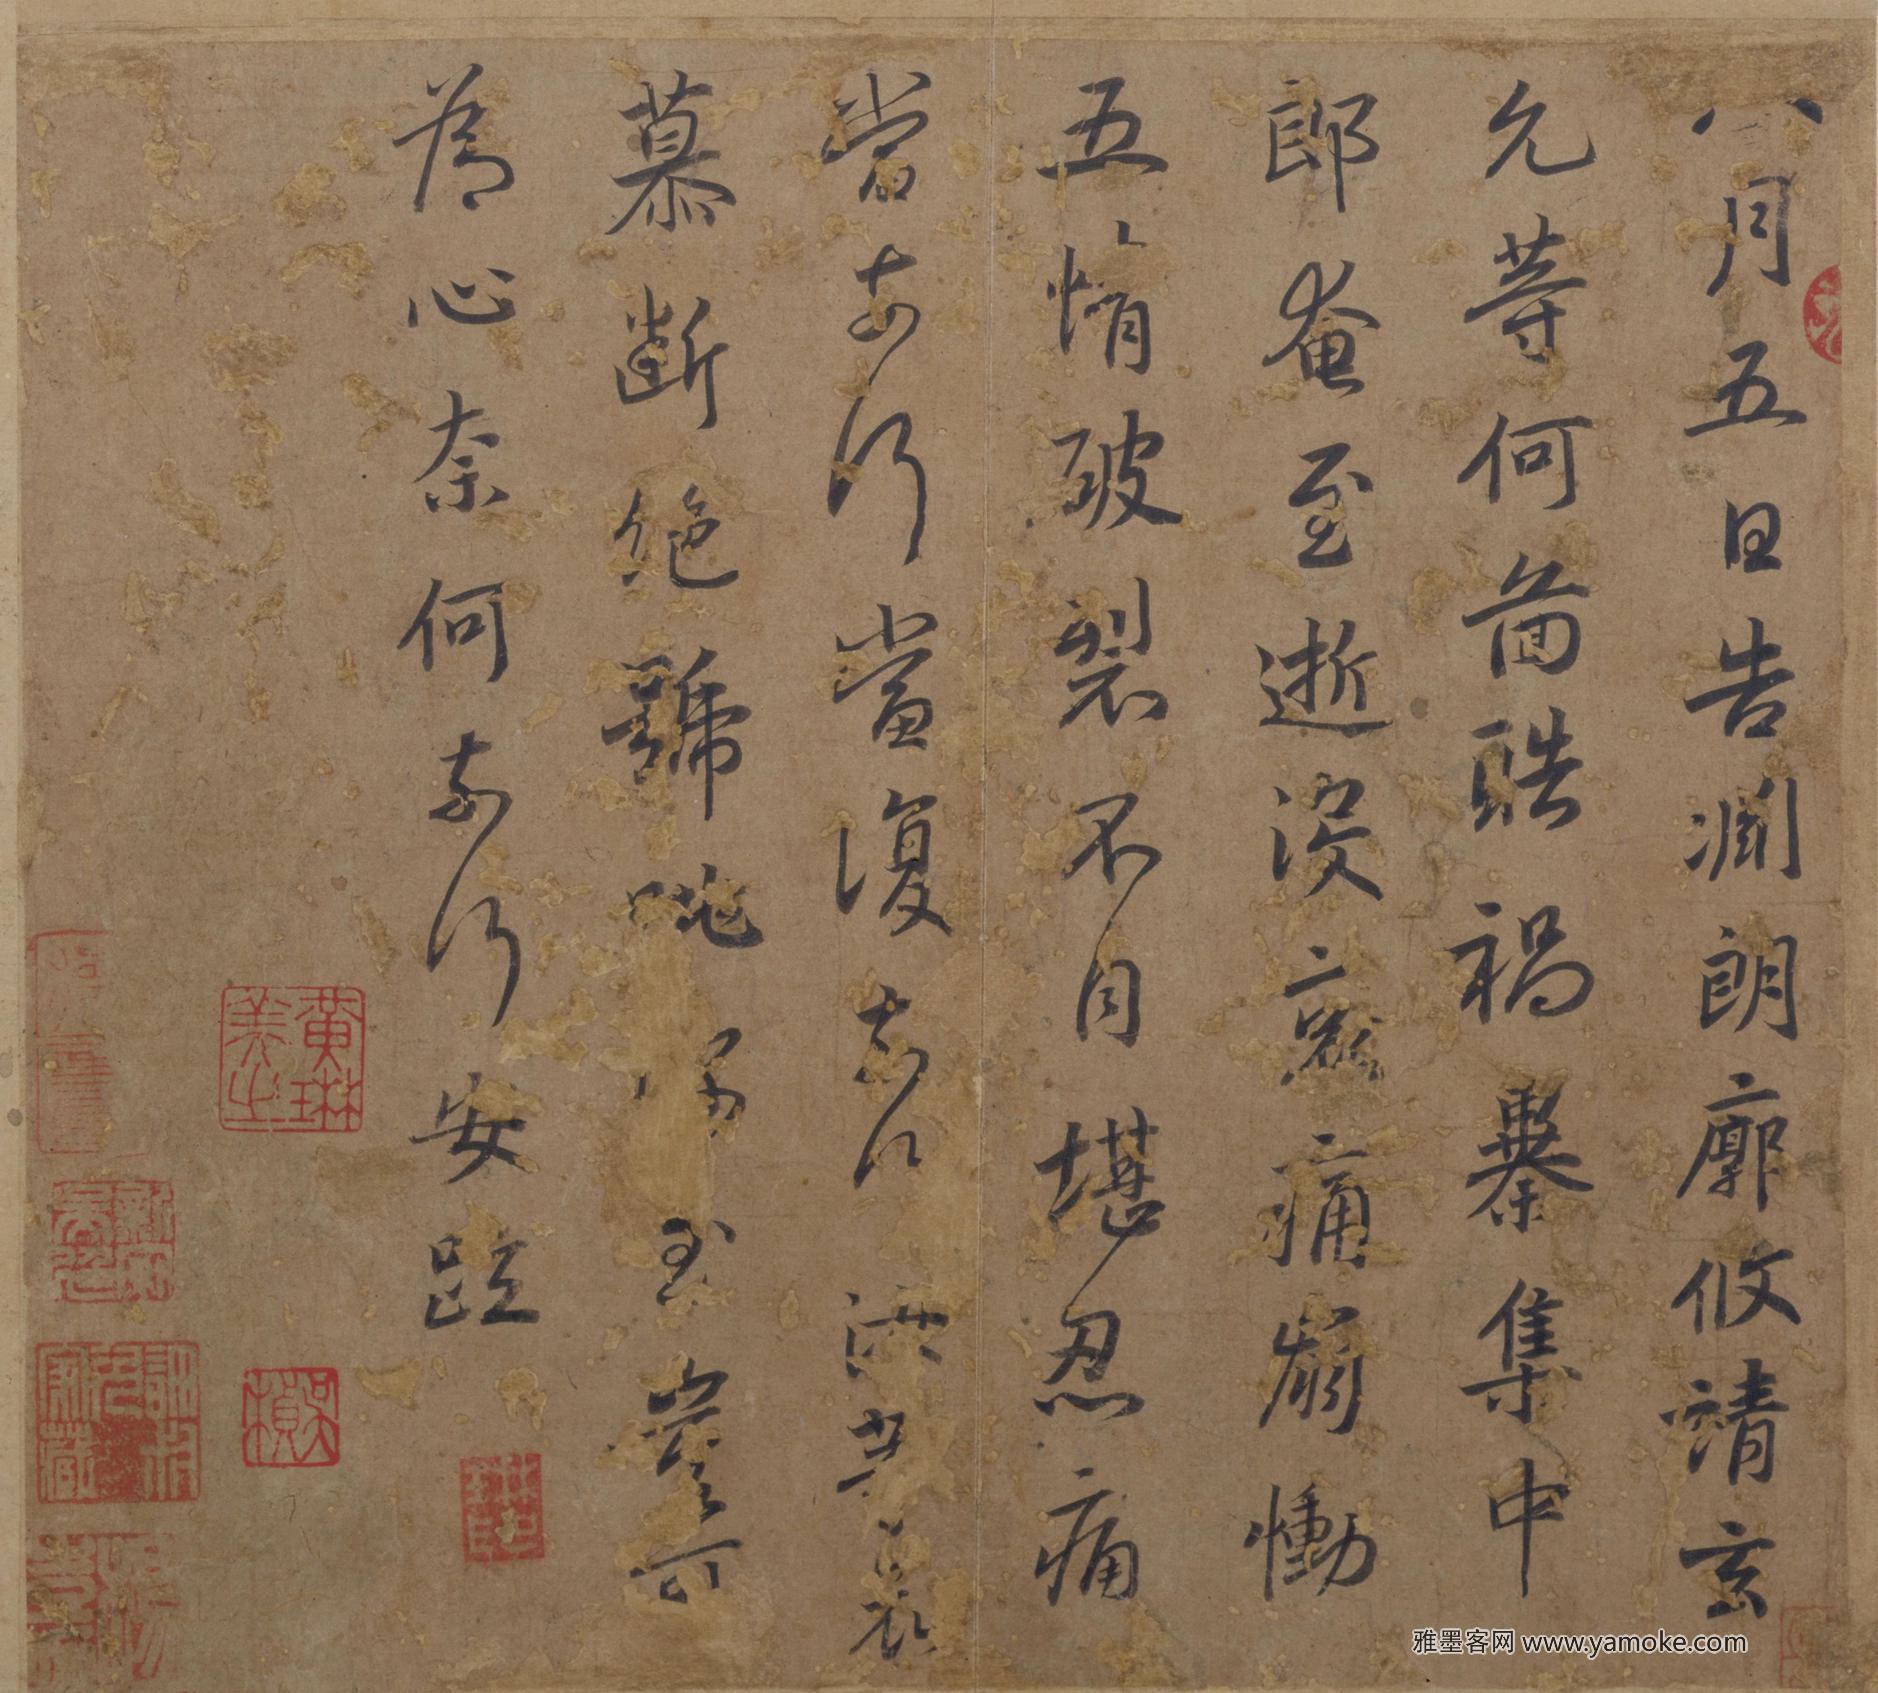 八月五日告淵朗廓攸靖玄
允等何圖酷禍暴集中
郎奄至逝没哀痛崩慟
五情破裂不自堪忍痛
當奈何當復奈何汝等哀
慕斷絶號咷深至豈可
為心奈何奈何安疏
黃琳美之
吳楨
雅墨客网 www.yamoke.com